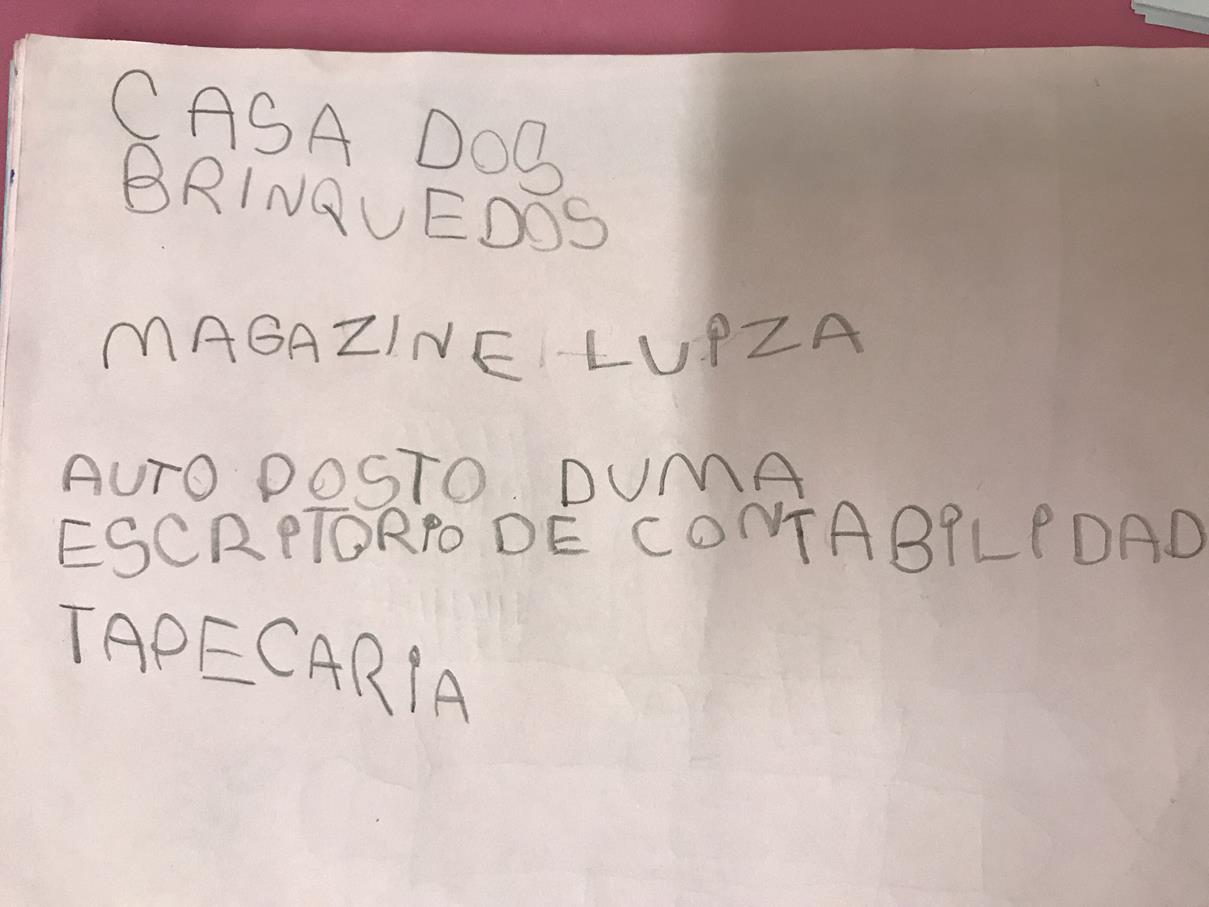 CASA DOS
BRINQUEDOS
MAGAZINE LUIZA
AUTO POSTO DUMA
ESCRITÓRIO DE CONTABILIDAD
TAPECARIA